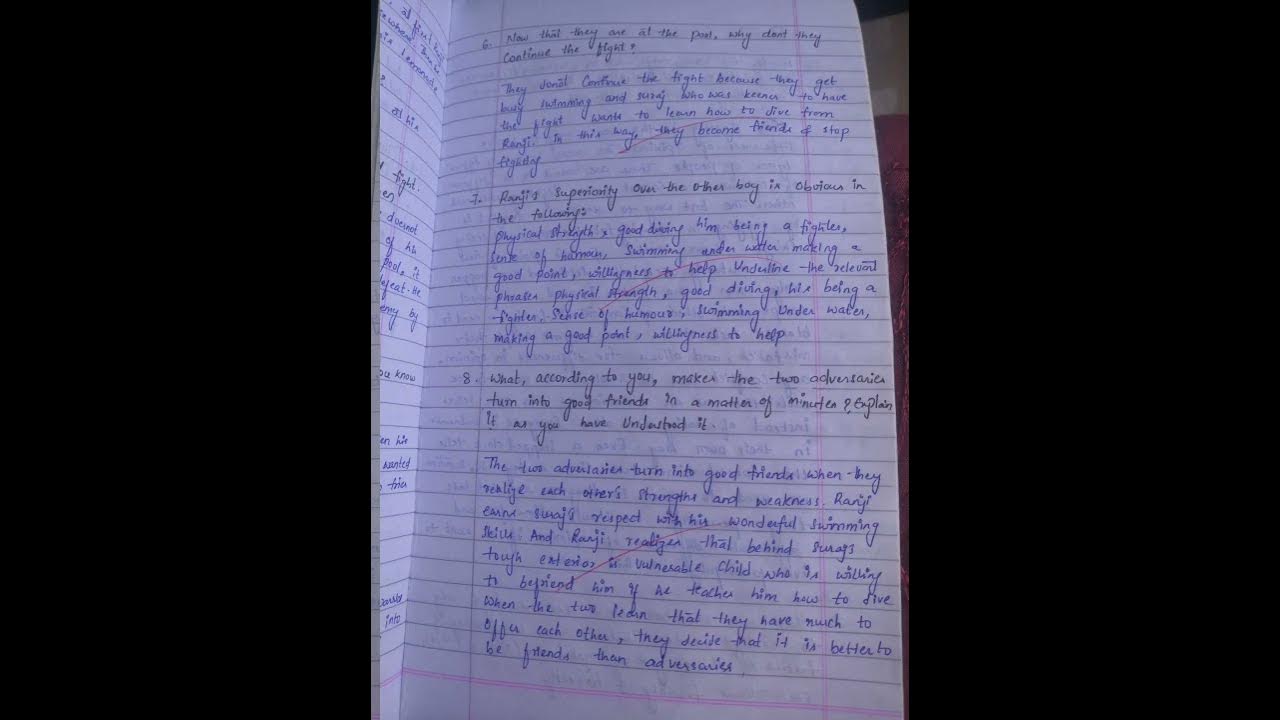 at first
lemonade
his
fight.
doesnot
of his
pool, it
defeat. He
enemy by
you know
en his
wanted
into
6. Now that they are at the pool, why dont they
Continue the fight?
They donot Continue the fight because they get
busy swimming and suraj who was keener to have
the fight wants to learn how to dive from
Ranji. In this way, they become friends & stop
fighting
7. Ranji's superiority over the other boy is obvious in
the following:
physical strength, good diving him being a fighter,
sense of humour, Swimming under water making a
good point, willingness to help Underline the relevant
phrases physical strength, good diving, his being a
fighter. Sense of humour, swimming Under water,
making a good point, willingness to help
8. What, according to you, makes the two adversaries
turn into good friends in a matter of minutes? Explain
it as you have Understood it.
The two adversaries turn into good friends when they
realize each other's strengths and weakness. Ranji
earns suraj's respect with his wonderful swimming
skills And Ranji realizes that behind surajs
tough exterior is vulnerable child who is willing
to befriend him if he teaches him how to dive
When the two learn that they have much to
offer each other, they decide that it is better to
be friends than adversaries.